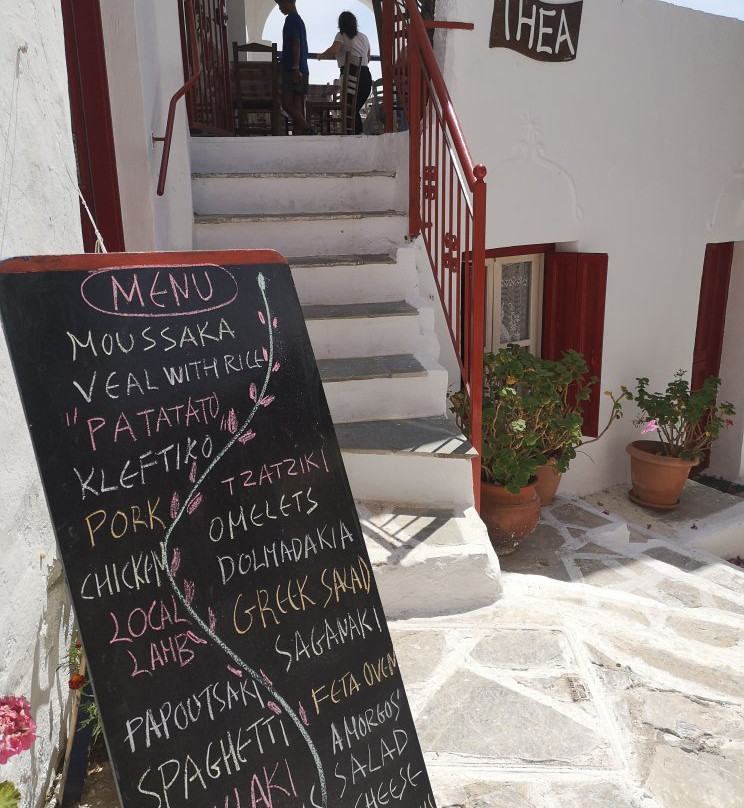 THEA
MENU
MOUSSAKA
VEAL WITH RICE
"PATATATO
KLEFTIKO
PORK
CHICKEN
LOCAL
LAMB
PAPOUTSAKI
SPAGHETTI
TZATZIKI
OMELETS
DOLMADAKIA
GREEK SALAD
SAGANAKI
FETA OVEN
AMORGOS'
SALAD
CHEESE